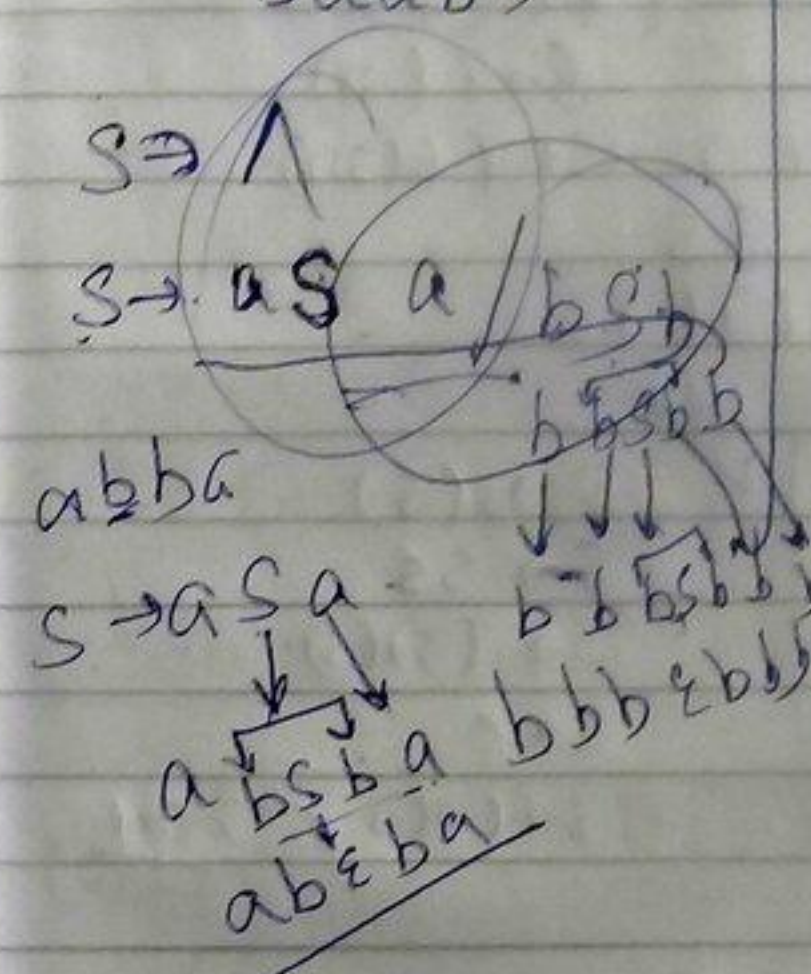 S → Λ
S → aSa / bSb
b bSb b
abba
S → aSa
b b bSb b
bbbεbbb
a bSb a
abεba